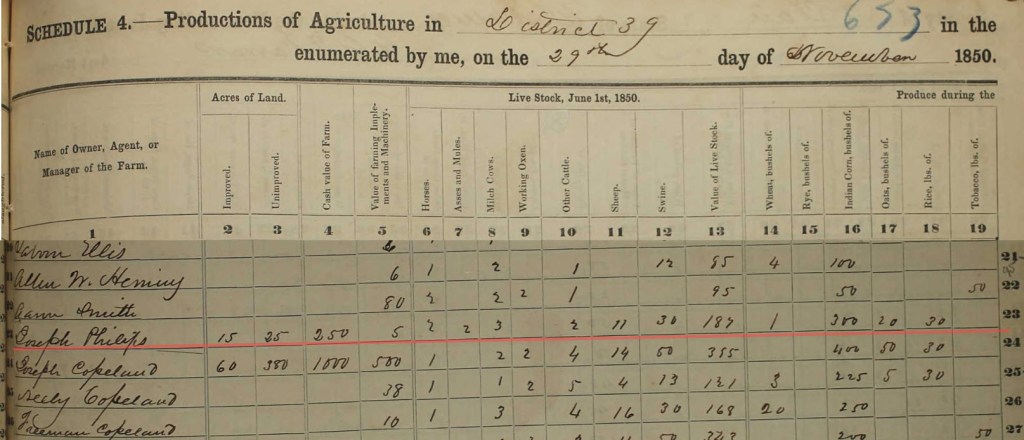 653
SCHEDULE 4.—Productions of Agriculture in District 39 in the
enumerated by me, on the 29th day of November 1850.
Acres of Land. Live Stock, June 1st, 1850. Produce during the
Name of Owner, Agent, or
Manager of the Farm.
Improved.
Unimproved.
Cash value of Farm.
Value of farming Imple-
ments and Machinery.
Horses.
Asses and Mules.
Milch Cows.
Working Oxen.
Other Cattle.
Sheep.
Swine.
Value of Live Stock.
Wheat, bushels of.
Rye, bushels of.
Indian Corn, bushels of.
Oats, bushels of.
Rice, lbs. of.
Tobacco, lbs. of.
1 2 3 4 5 6 7 8 9 10 11 12 13 14 15 16 17 18 19
Ellis 6
Allen W. Heming 6 1 2 1 12 85 4 100 21
Aaron Smith 80 2 2 2 1 95 50 50 22
Joseph Philips 15 25 250 5 2 2 3 2 11 30 187 1 300 20 30 23
Joseph Copeland 60 380 1000 500 1 2 2 4 14 50 355 400 50 30 24
Neely Copeland 38 1 1 2 5 4 13 121 3 225 5 30 25
Freeman Copeland 10 1 3 4 16 30 168 20 250 26
50 27